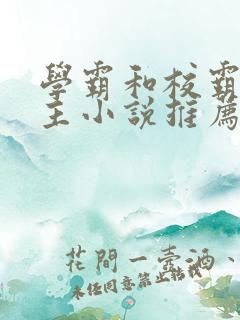 學霸和校霸
主小說推薦
花間一壺酒、
未任同意禁止轉載